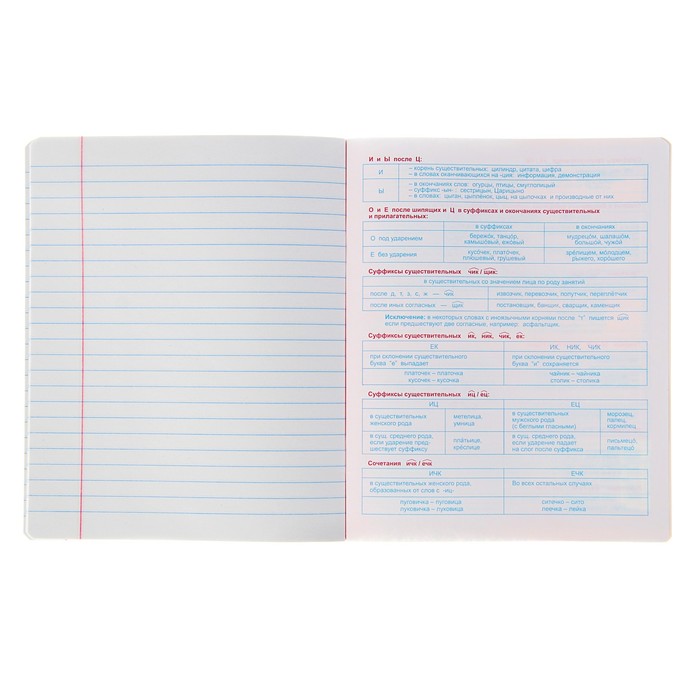 И и Ы после Ц:
И
– корень существительных: цилиндр, цитата, цифра
– в словах оканчивающихся на -ция: информация, демонстрация
Ы
– в окончаниях слов: огурцы, птицы, смуглолицый
– суффикс -ын- сестрицын, Царицыно
– в словах: цыган, цыплёнок, цыц, на цыпочках и производные от них
О и Е после шипящих и Ц в суффиксах и окончаниях существительных
и прилагательных:
в суффиксах
в окончаниях
О под ударением
бережок, танцор,
камышовый, ежовый
мудрецом, шалашом,
большой, чужой
Е без ударения
кусочек, платочек,
плюшевый, грушевый
зрелищем, молодцем,
рыжего, хорошего
Суффиксы существительных чик / щик:
в существительных со значением лица по роду занятий
после д, т, з, с, ж — чик
извозчик, перевозчик, попутчик, переплётчик
после иных согласных — щик
постановщик, банщик, сварщик, каменщик
Исключение: в некоторых словах с иноязычными корнями после "т" пишется щик
если предшествуют две согласные, например: асфальтщик.
Суффиксы существительных ик, ник, чик, ек:
ЕК
ИК, НИК, ЧИК
при склонении существительного
буква "е" выпадает
при склонении существительного
буква "и" сохраняется
платочек – платочка
кусочек – кусочка
чайник – чайника
столик – столика
Суффиксы существительных иц / ец:
ИЦ
ЕЦ
в существительных
женского рода
метелица,
умница
в существительных
мужского рода
(с беглыми гласными)
морозец,
палец,
в сущ. среднего рода,
если ударение пред-
шествует суффиксу
платьице,
креслице
в сущ. среднего рода,
если ударение падает
на слог после суффикса
письмецо,
пальтецо
Сочетания ичк / ечк
ИЧК
ЕЧК
в существительных женского рода,
образованных от слов с -иц-
Во всех остальных случаях
пуговичка – пуговица
луковичка – луковица
ситечко – сито
леечка – лейка